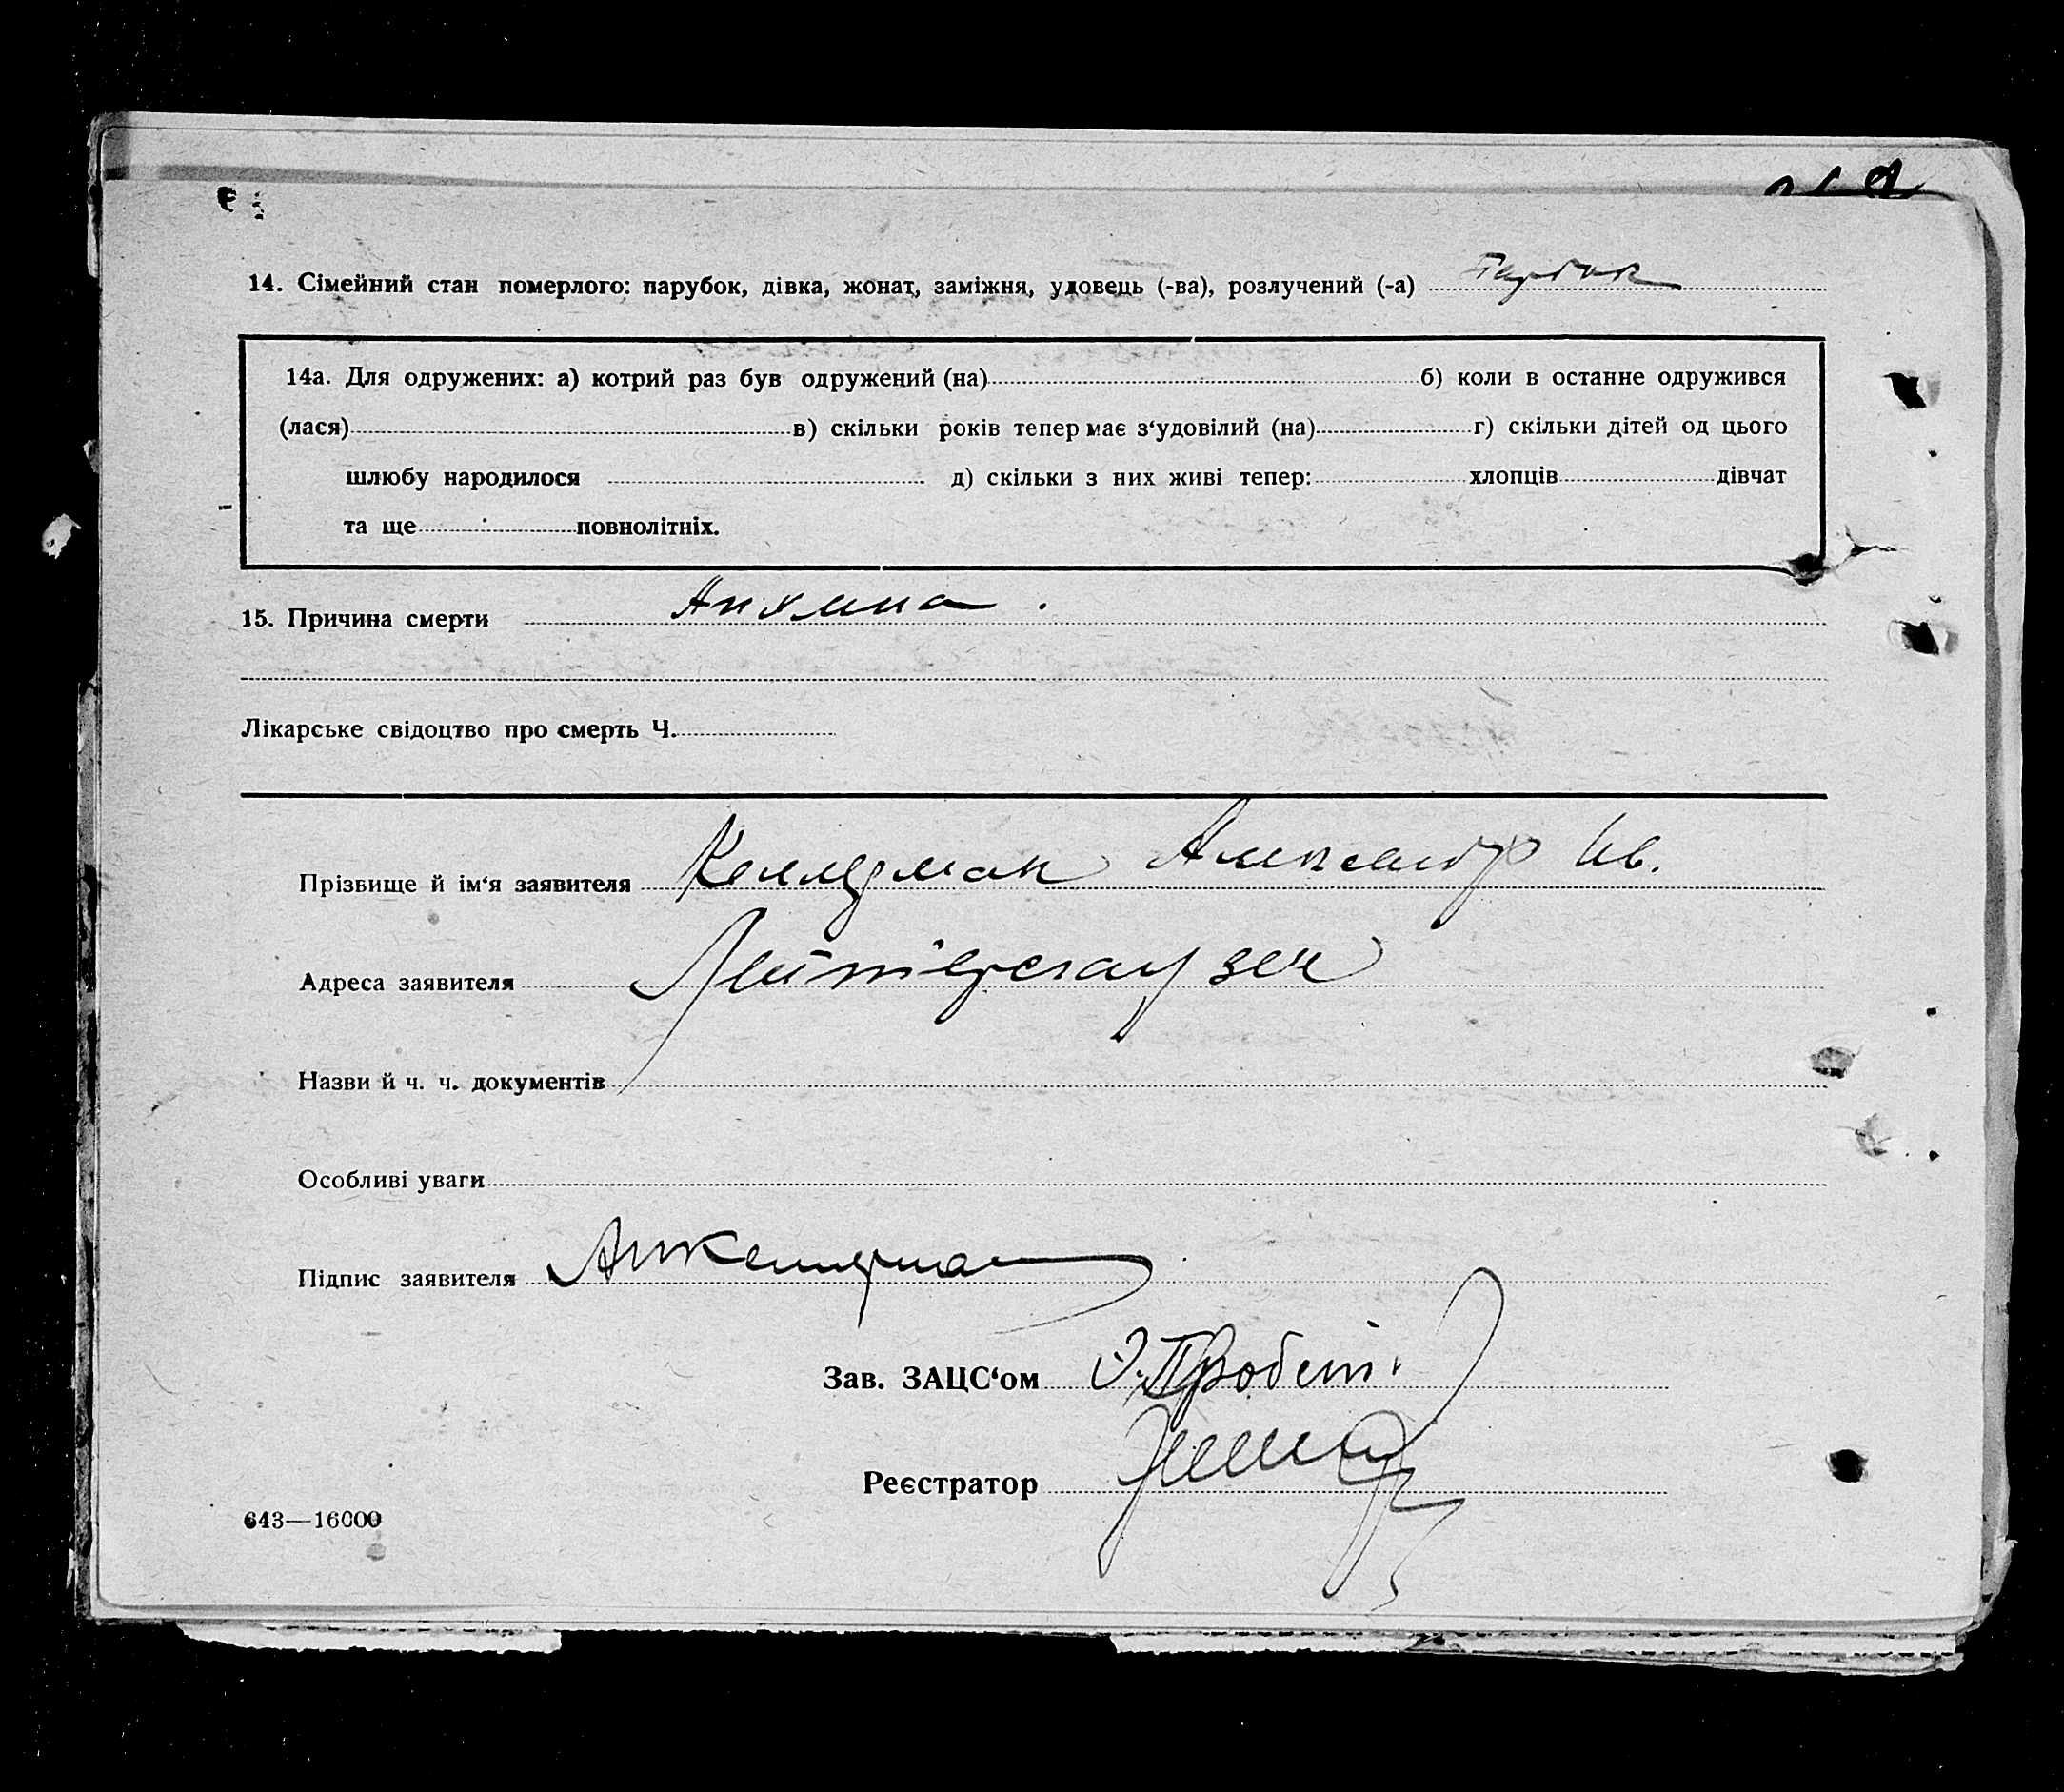 14. Сімейний стан померлого: парубок, дівка, жонат, заміжня, удовець (-ва), розлучений (-а) Парубок
14а. Для одружених: а) котрий раз був одружений (на) б) коли в останне одружився
(лася) в) скільки років тепер має з‘удовілий (на) г) скільки дітей од цього
шлюбу народилося д) скільки з них живі тепер: хлопців дівчат
та ще повнолітніх.
15. Причина смерти
Лікарське свідоцтво про смерть Ч.
Прізвище й ім‘я заявителя Келлерман Александр Ив.
Адреса заявителя Лейтерсгаузен
Назви й ч. ч. документів
Особливі уваги
Підпис заявителя АиКеллерман
Зав. ЗАЦС‘ом
Реєстратор
643—16000